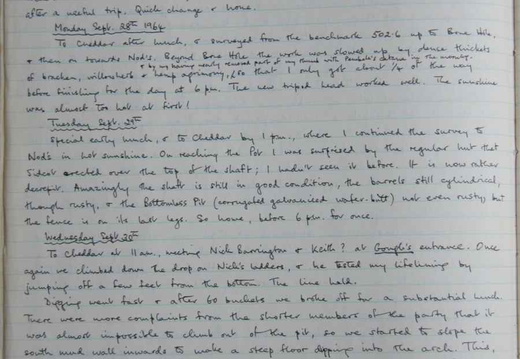 after a useful trip. Quick change & home.
Monday Sept. 28th 1964
To Cheddar after lunch, & surveyed from the benchmark 502.6 up to Bone Hole,
& then on towards Nod's. Beyond Bone Hole the work was slowed up by dense thickets
& by my having nearly removed part of my thumb with
of bracken, willowherb & hemp agrimony, so that I only got about 1/4 of the way
before finishing for the day at 6 pm. The new tripod head worked well. The sunshine
was almost too hot at first!
Tuesday Sept. 29th
Special early lunch, & to Cheddar by 1 pm., where I continued the survey to
Nod's in hot sunshine. On reaching the Pot I was surprised by the regular hut that
Sidcot erected over the top of the shaft; I hadn't seen it before. It is now rather
decrepit. Amazingly the shaft is still in good condition, the barrels still cylindrical,
though rusty, & the Bottomless Pit (corrugated galvanised water butt) not even rusty, but
the fence is on its last legs. So home, before 6 pm. for once.
Wednesday Sept 30th
To Cheddar at 11 am., meeting Nick Barrington & Keith? at Gough's entrance. Once
again we climbed down the drop on Nick's ladders, & he tested my lifelining by
jumping off a few feet from the bottom. The line held.
Digging went fast & after 60 buckets we broke off for a substantial lunch.
There were more complaints from the shorter members of the party that it
was almost impossible to climb out of the pit, so we started to slope the
south mud wall inwards to make a steep floor dipping into the arch. This,